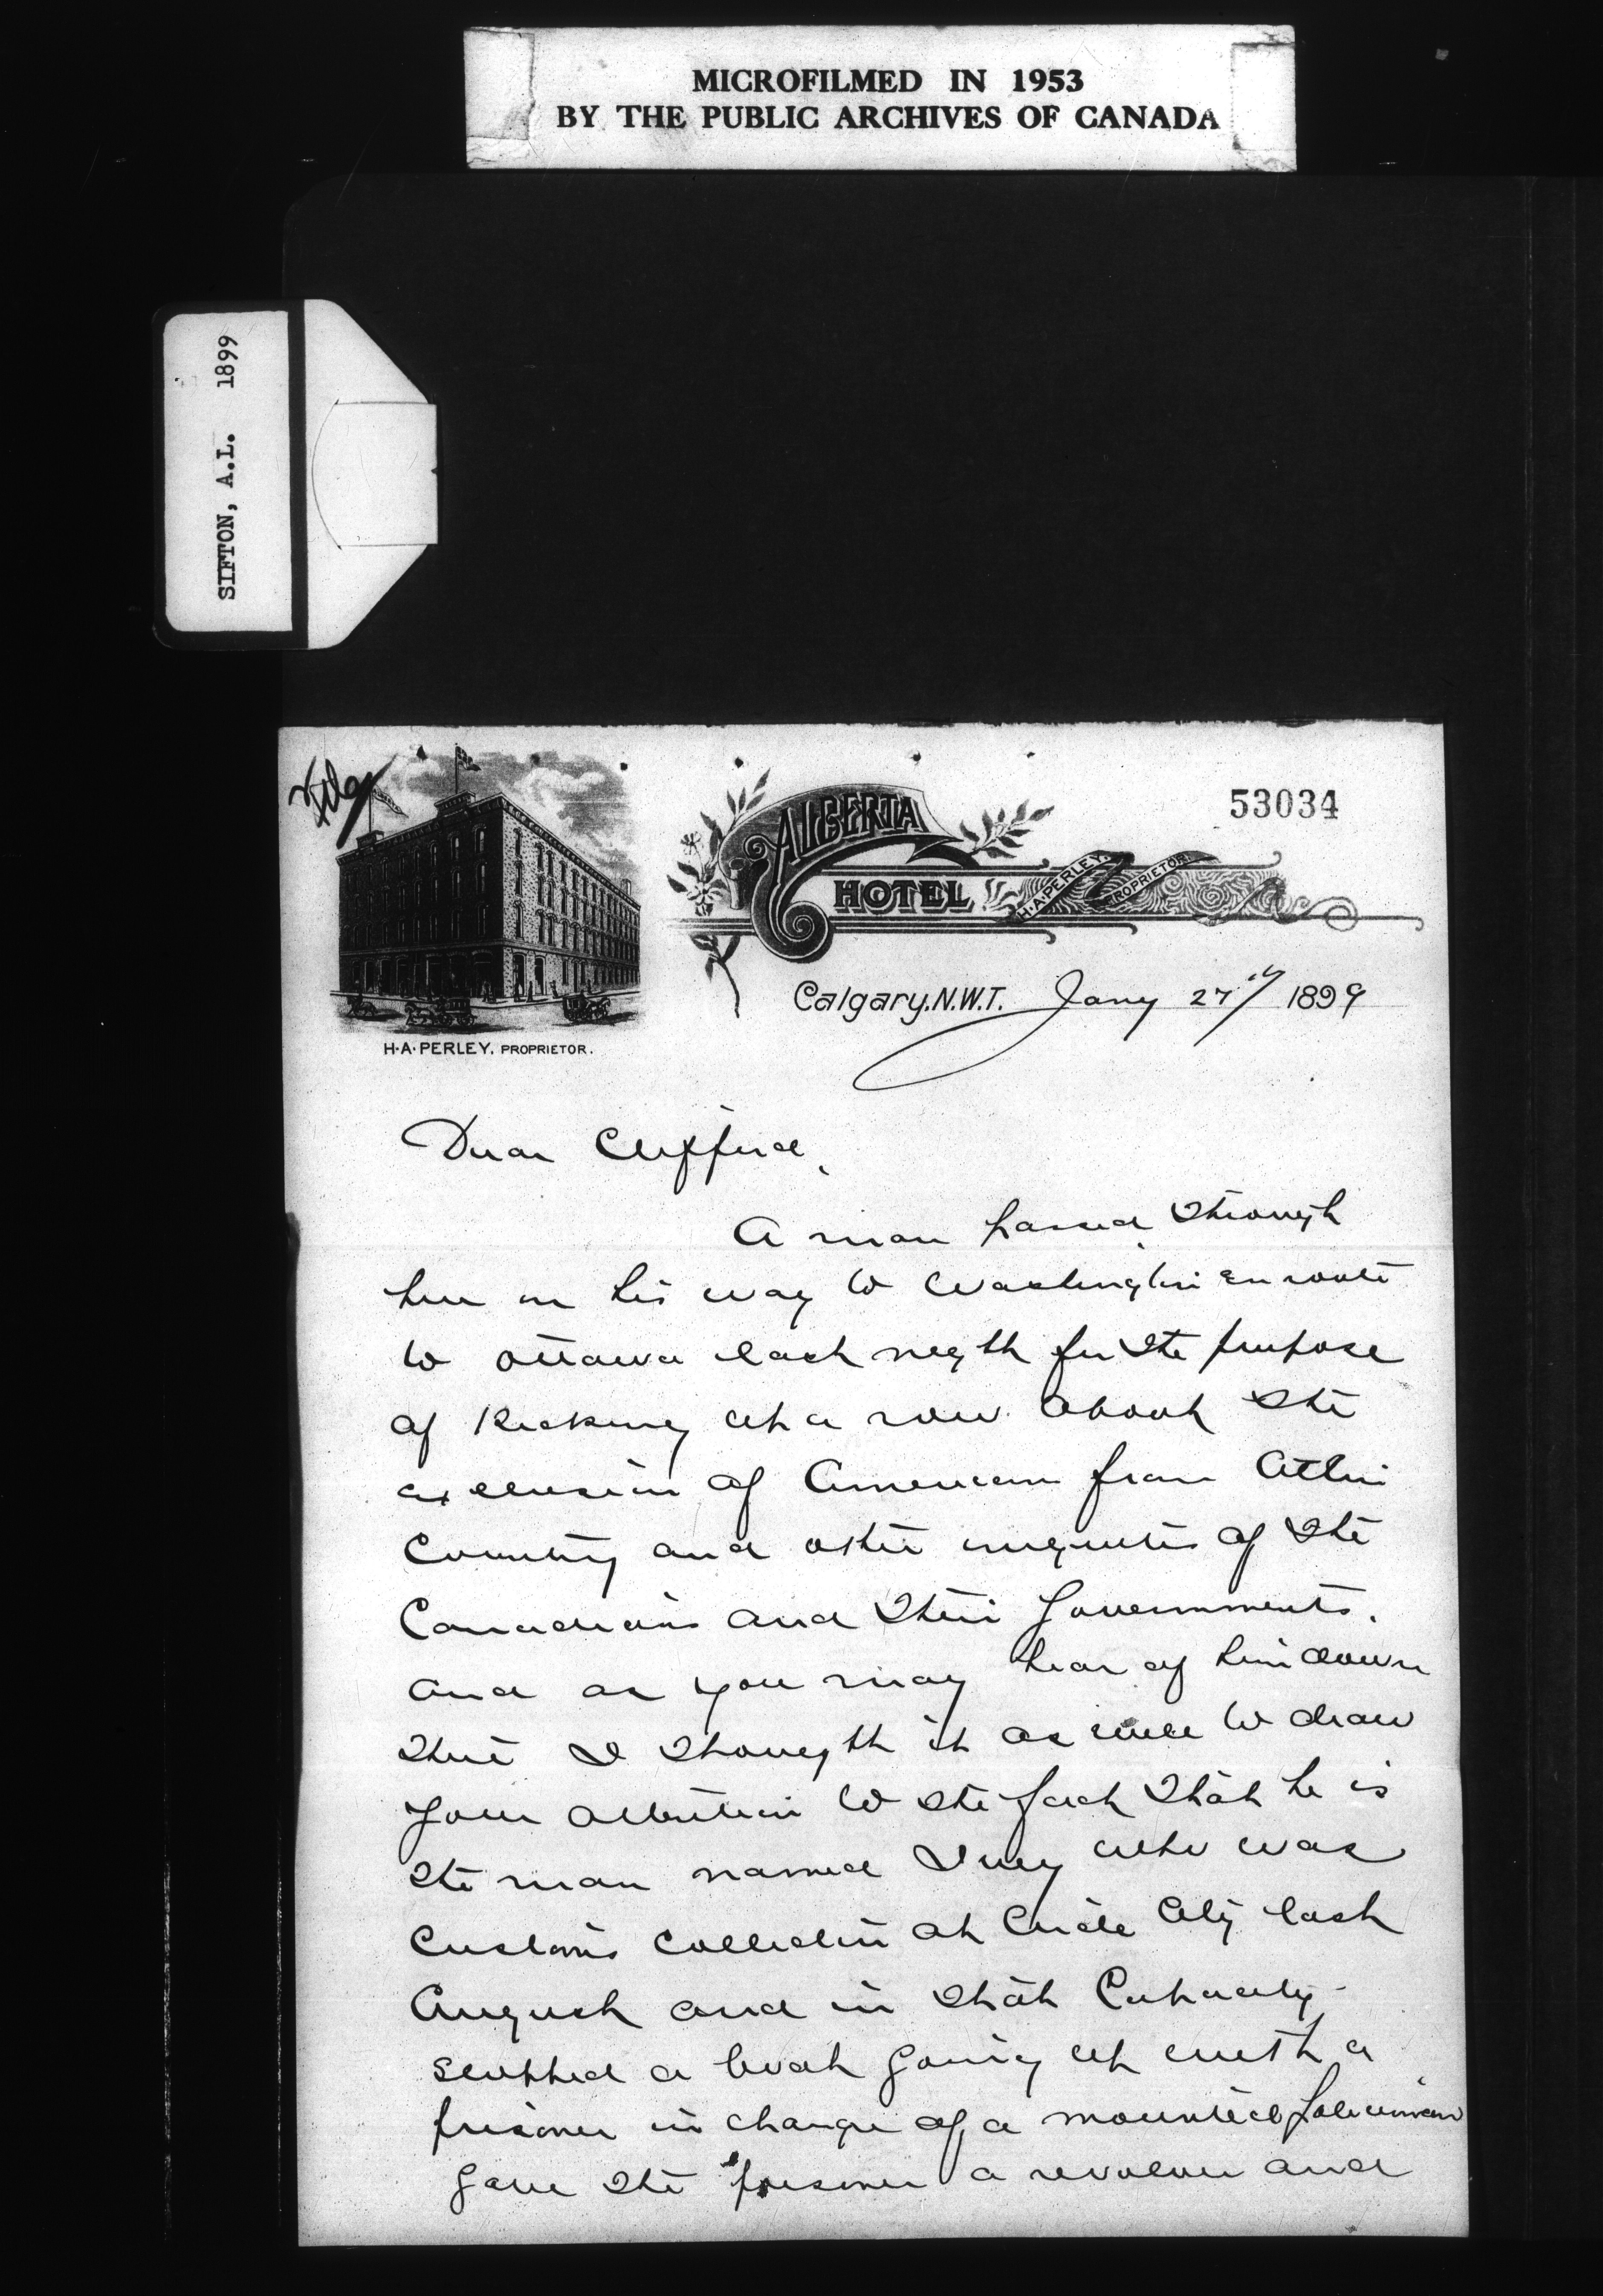 MICROFILMED IN 1953
BY THE PUBLIC ARCHIVES OF CANADA
SIFTON, A.L. 1899
53034
ALBERTA
HOTEL
H.A. PERLEY, PROPRIETOR.
Calgary, N.W.T. Jany 27th 1899
H.A. PERLEY, PROPRIETOR.
Dear Clifford,
A man passed through
here on his way to Washington en route
to Ottawa last night for the purpose
of kicking up a row about the
exclusion of Americans from Atlin
Country and other iniquities of the
Canadians and their Governments.
And as you may hear of him down
there I thought it as well to draw
your attention to the fact that he is
the man named Ivey who was
Customs Collector at Circle City last
August and in that Capacity
stopped a boat going up with a
prisoner in charge of a mounted policeman
gave the prisoner a revolver and